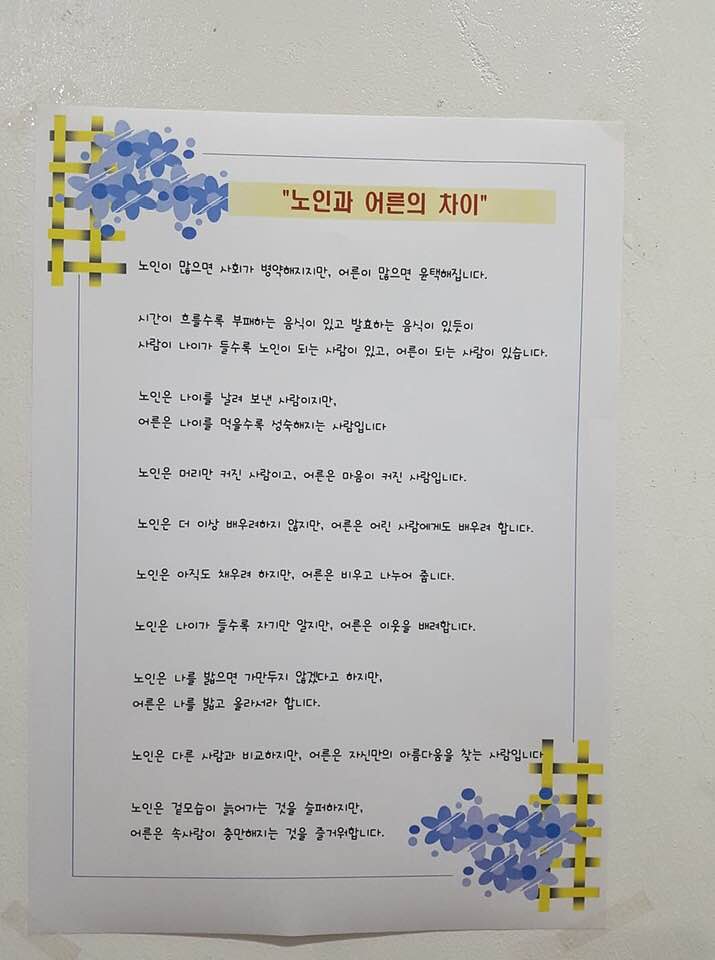 "노인과 어른의 차이"
노인이 많으면 사회가 병약해지지만, 어른이 많으면 윤택해집니다.
시간이 흐를수록 부패하는 음식이 있고 발효하는 음식이 있듯이
사람이 나이가 들수록 노인이 되는 사람이 있고, 어른이 되는 사람이 있습니다.
노인은 나이를 날려 보낸 사람이지만,
어른은 나이를 먹을수록 성숙해지는 사람입니다
노인은 머리만 커진 사람이고, 어른은 마음이 커진 사람입니다.
노인은 더 이상 배우려하지 않지만, 어른은 어린 사람에게도 배우려 합니다.
노인은 아직도 채우려 하지만, 어른은 비우고 나누어 줍니다.
노인은 나이가 들수록 자기만 알지만, 어른은 이웃을 배려합니다.
노인은 나를 밟으면 가만두지 않겠다고 하지만,
어른은 나를 밟고 올라서라 합니다.
노인은 다른 사람과 비교하지만, 어른은 자신만의 아름다움을 찾는 사람입니다
노인은 겉모습이 늙어가는 것을 슬퍼하지만,
어른은 속사람이 충만해지는 것을 즐거워합니다.